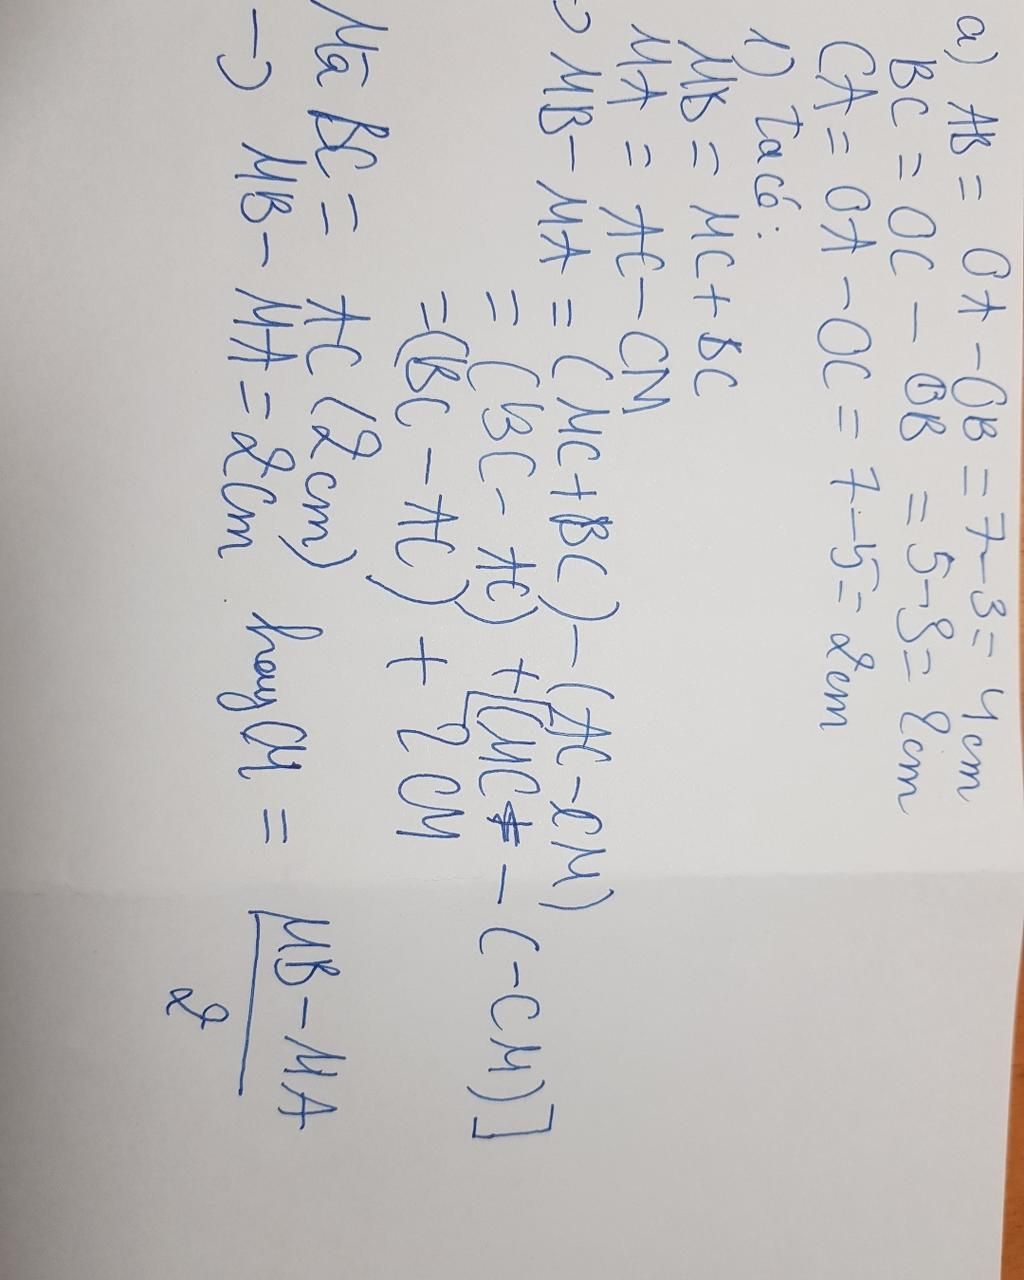 a) AB = OA - OB = 7-3 = 4cm
BC = OC - OB = 5-3 = 2cm
CA = OA - OC = 7-5 = 2cm
1) ta có:
MB = MC + BC
MA = AC - CM
→ MB - MA = (MC + BC) - (AC - CM)
= (BC - AC) + [MC - (-CM)]
= (BC - AC) + 2CM
Mà BC = AC (2cm)
→ MB - MA = 2CM hay CM = MB - MA
2